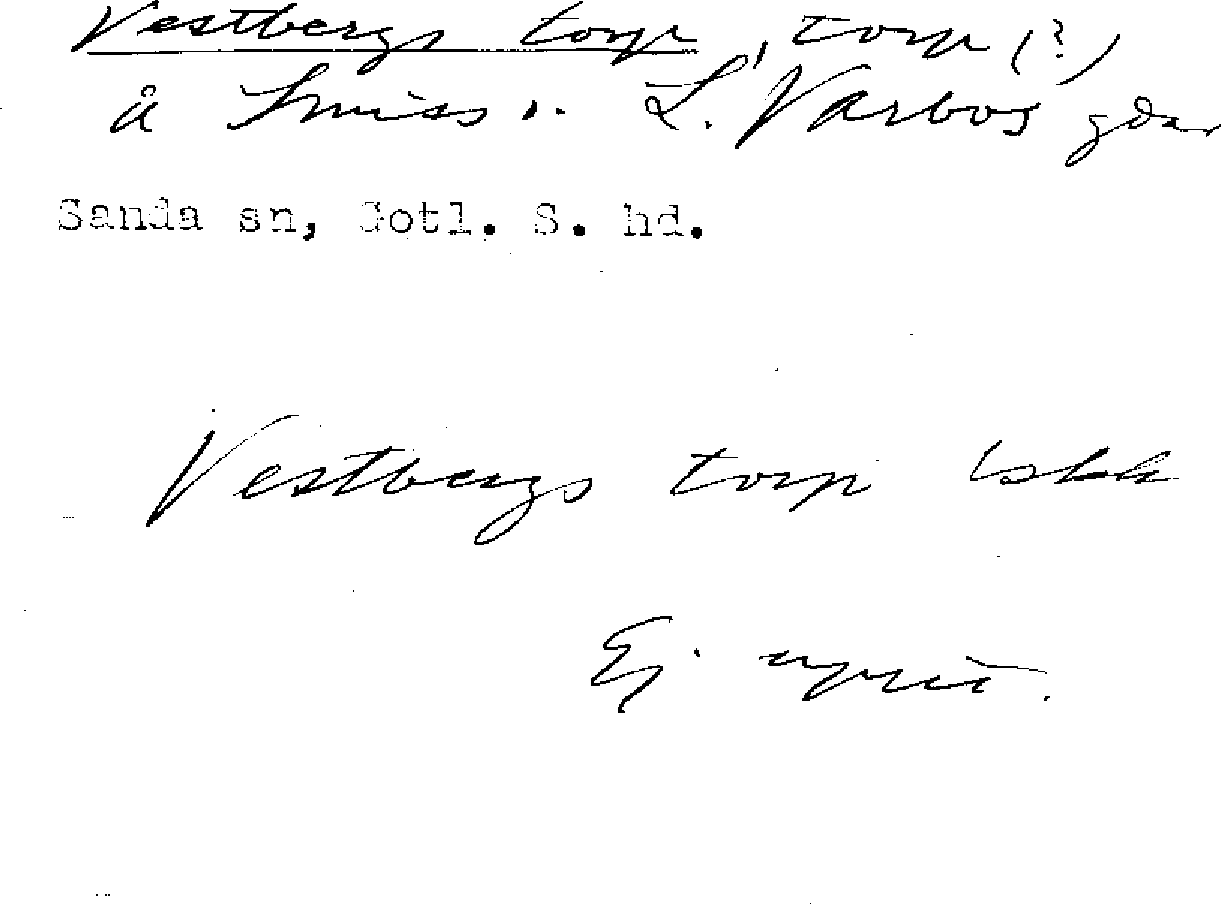 Vestbergs torp, torp (?)
å Smiss o. L. Varbos gdar
Sanda sn, Gotl. S. hd.
Vestbergs torp
Ej